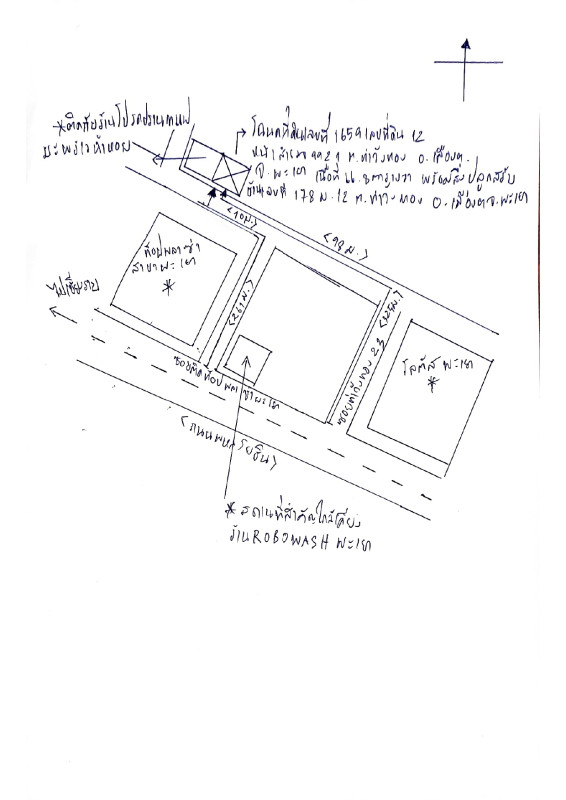 *ติดกับร้านโปรดปรานกาแฟ
มะพร้าวห้าหอม
โฉนดที่ดินเลขที่ 1659 เลขที่ดิน 12
ต.ท่าวังทอง อ.เมืองฯ
จ.พะเยา เนื้อที่ ตารางวา พร้อมสิ่งปลูกสร้าง
บ้านเลขที่ 178 ม.12 ต.ท่าวังทอง อ.เมืองฯ จ.พะเยา
<10ม.>
<98ม.>
ท็อปพลาซ่า
สาขาพะเยา
*
<261ม.>
<125ม.>
ไปเชียงราย
โลตัส พะเยา
*
ซอยติดท็อปพลาซ่าพะเยา
ซอยท่าวังทอง 23
<ถนนพหลโยธิน>
*สถานที่สำคัญใกล้เคียง
ร้าน ROBOWASH พะเยา